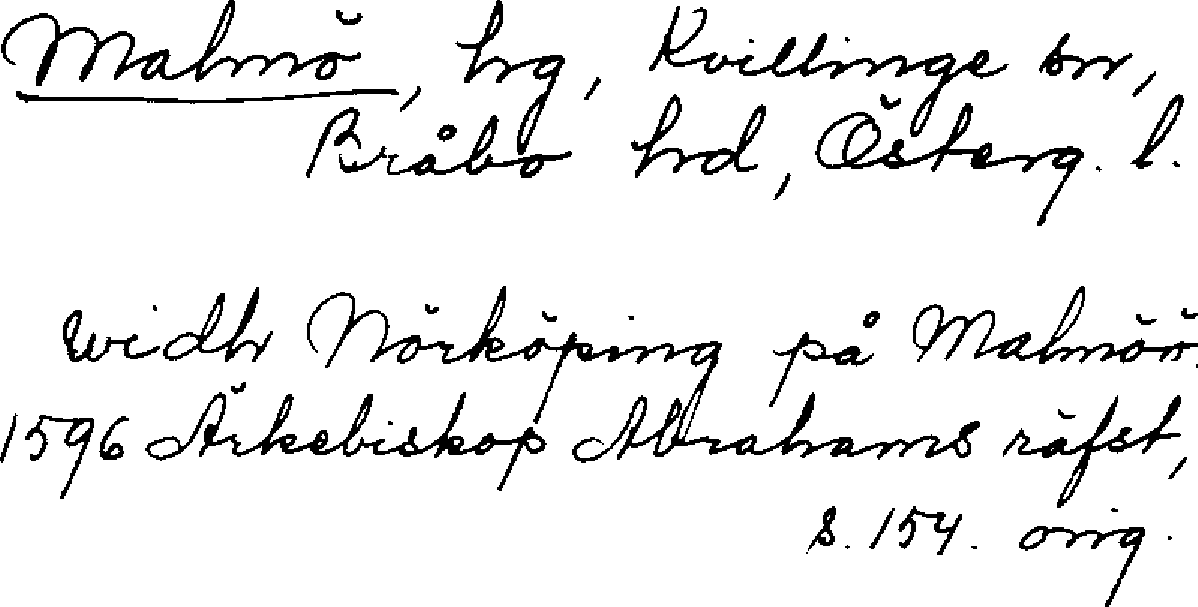 Malmö, hrg, Kvillinge sn,
Bråbo hrd, Österg. l.
widh Nörköping på Malmöö.
1596 Ärkebiskop Abrahams räfst,
s. 154. orig.